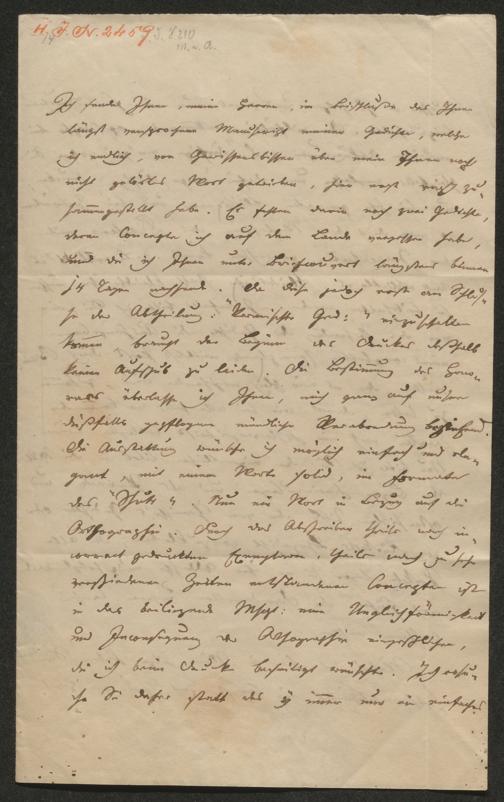 H. I. N. 2459
Ich sende Ihnen, mein Herren, im Beischlusse das Ihnen
längst versprochene Manuscript meiner Gedichte, welche
ich endlich, von Gewissensbissen über mein Ihnen noch
nicht gelöstes Wort getrieben, hier erst recht zu-
sammengestellt habe. Es fehlen darin noch zwei Gedichte,
deren Concepte ich auf dem Lande vergessen habe,
und die ich Ihnen unter Briefcouvert längstens binnen
14 Tagen nachsende. Da diese jedoch erst am Schlus-
se der Abtheilung: "Vermischte Ged:" einzuschalten
kommen, braucht der Beginn des Druckes deßhalb
keinen Aufschub zu leiden. Die Bestimmung des Hono-
rars überlasse ich Ihnen, mich ganz auf unsere
dießfalls gepflogene mündliche Verabredung beziehend.
Die Ausstattung wünsche ich möglichst einfach und ele-
gant, mit einem Worte solid, im Formate
des "Schutt". Nun ein Wort in Bezug auf die
Orthographie. Durch das Abschreiben theils nach in-
correct gedruckten Exemplaren, theils nach zu sehr
verschiedenen Zeiten entstandenen Concepten ist
in das beiliegende Mscpt: eine Ungleichförmigkeit
und Inconsequenz der Orthographie eingeschlichen,
die ich beim Druck beseitigt wünschte. Ich ersu-
che Sie daher statt des ÿ immer nur ein einfaches